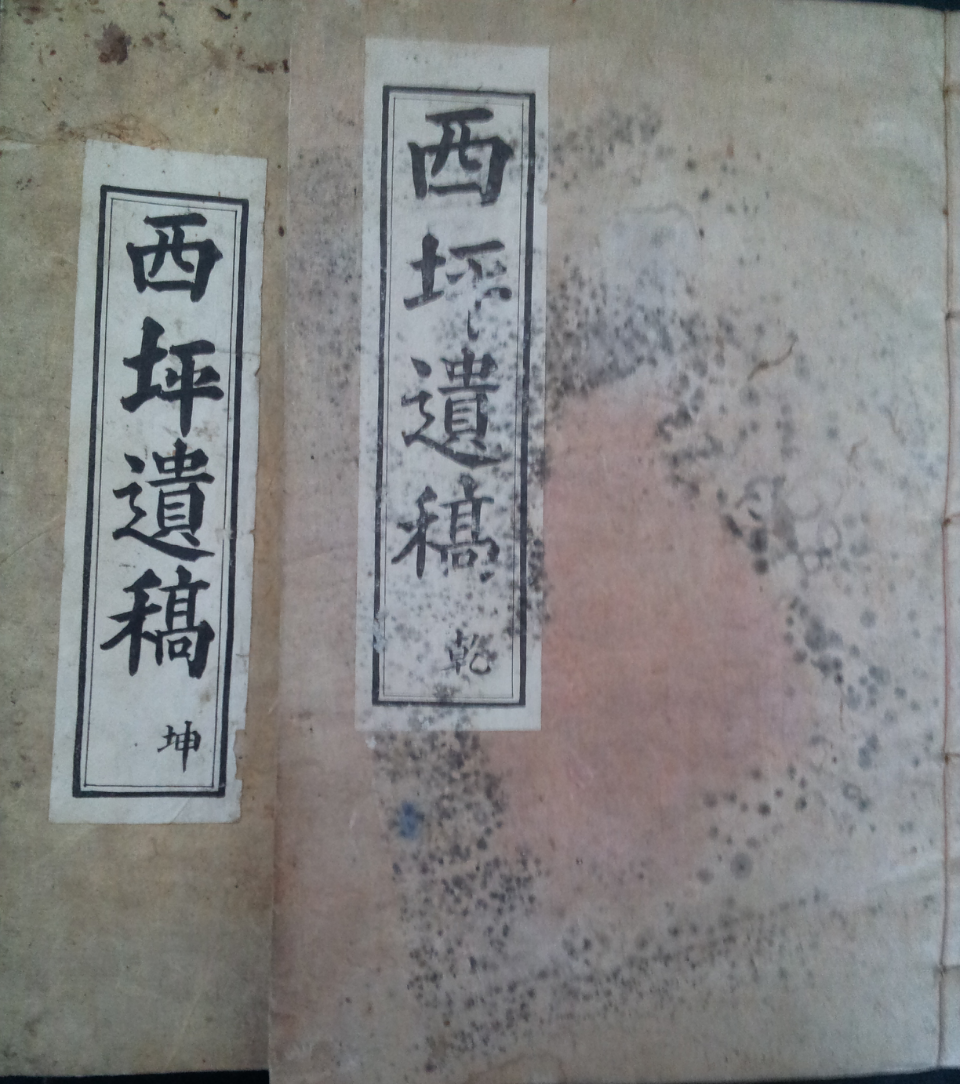 西坪遺稿 乾
西坪遺稿 坤